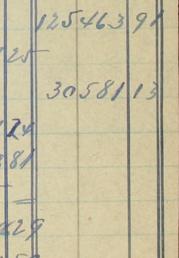 125463 91
25
30581 13
24
81
29